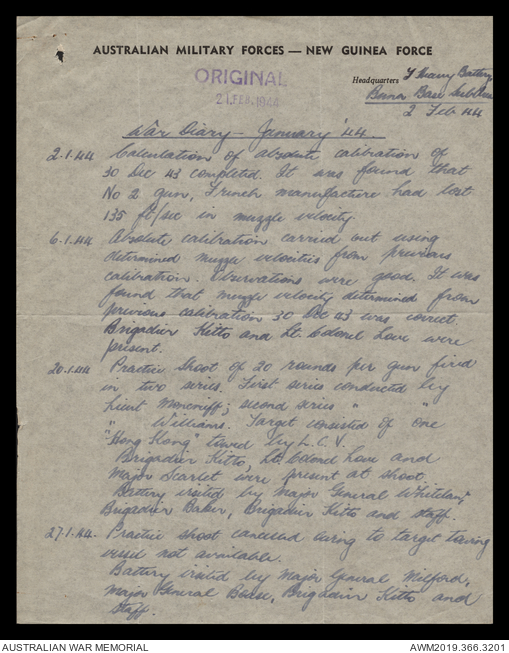 AUSTRALIAN MILITARY FORCES — NEW GUINEA FORCE
ORIGINAL
21 FEB 1944
Headquarters Heavy Battery
Base Sub Area
2 Feb 44
War Diary - January '44
2.1.44 Calculation of absolute calibration of
30 Dec 43 completed. It was found that
No 2 gun, French manufacture had lost
135 ft/sec in muzzle velocity.
6.1.44 Absolute calibration carried out using
determined muzzle velocities from previous
calibration. Observations were good. It was
found that muzzle velocity determined from
previous calibration 30 Dec 43 was correct.
Brigadier Kitto and Lt. Colonel Love were
present.
20.1.44 Practice shoot of 20 rounds per gun fired
in two series. First series conducted by
Lieut Moncrieff; second series " "
" Williams. Target consisted of one
"Hong Kong" towed by L.C.V.
Brigadier Kitto, Lt. Colonel Love and
Major Scarlet were present at shoot.
Battery visited by Major General Whitelaw,
Brigadier Baker, Brigadier Kitto and staff.
27.1.44. Practice shoot cancelled owing to target towing
vessel not available.
Battery visited by Major General Milford,
Major General Boase, Brigadier Kitto and
staff.
AUSTRALIAN WAR MEMORIAL
AWM2019.366.3201